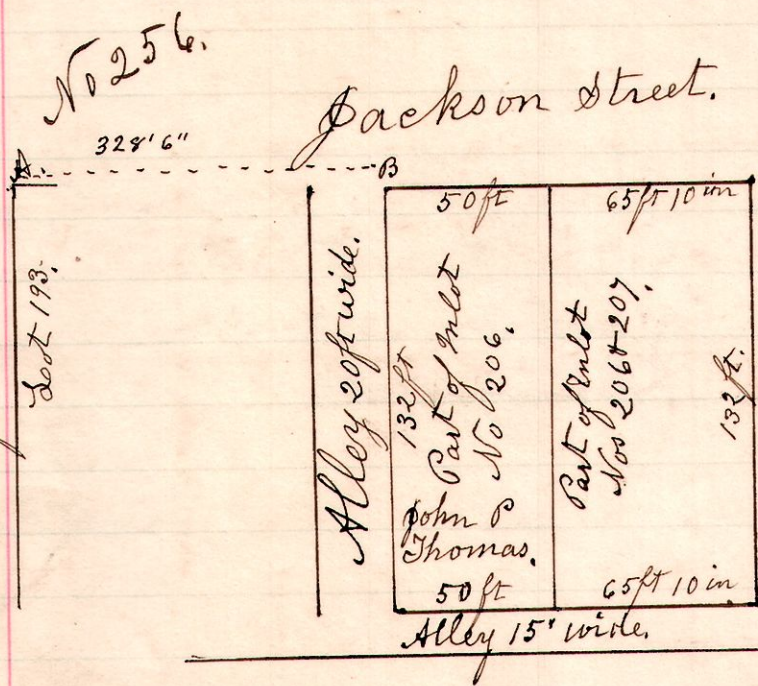 No 256.
Jackson Street.
328' 6"
A
B
50 ft
65 ft 10 in
Lot 193.
Alley 20 ft wide.
132 ft
Part of Inlot
No 206.
John P
Thomas.
Part of Inlot
Nos 206 & 207.
132 ft.
50 ft
65 ft 10 in
Alley 15' wide.